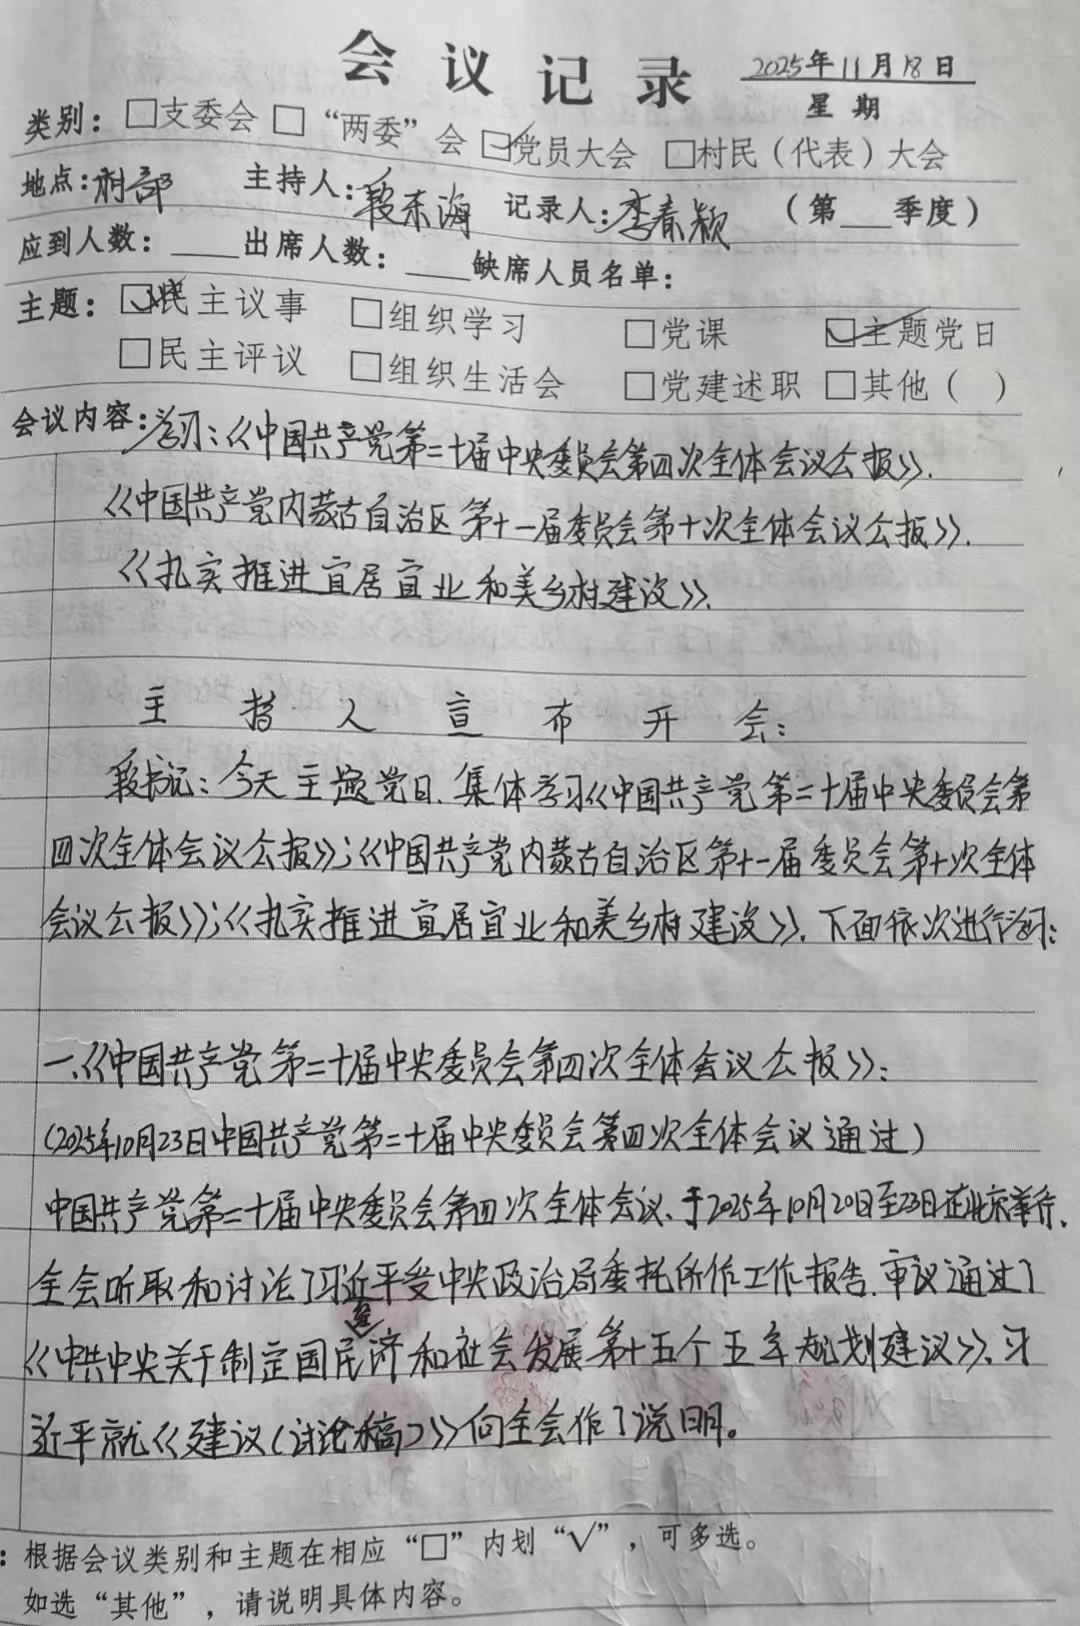 会议记录 2025年11月18日
星期
类别：□支委会 □“两委”会 ☑党员大会 □村民（代表）大会
地点：村部 主持人：段东海 记录人：李春颖 （第___季度）
应到人数：____出席人数：____缺席人员名单：
主题：☑民主议事 □组织学习 □党课 ☑主题党日
□民主评议 □组织生活会 □党建述职 □其他（ ）
会议内容：学习：《中国共产党第二十届中央委员会第四次全体会议公报》.
《中国共产党内蒙古自治区第十一届委员会第十次全体会议公报》.
《扎实推进宜居宜业和美乡村建设》.
主持人宣布开会：
段书记：今天主题党日.集体学习《中国共产党第二十届中央委员会第
四次全体会议公报》；《中国共产党内蒙古自治区第十一届委员会第十次全体
会议公报》；《扎实推进宜居宜业和美乡村建设》.下面依次进行学习：
一.《中国共产党第二十届中央委员会第四次全体会议公报》：
（2025年10月23日中国共产党第二十届中央委员会第四次全体会议通过）
中国共产党第二十届中央委员会第四次全体会议、于2025年10月20日至23日在北京举行.
全会听取和讨论了习近平受中央政治局委托所作工作报告.审议通过了
《中共中央关于制定国民济和社会发展第十五个五年规划建议》、习
近平就《建议（讨论稿）》向全会作了说明。
：根据会议类别和主题在相应“□”内划“√”，可多选。
如选“其他”，请说明具体内容。